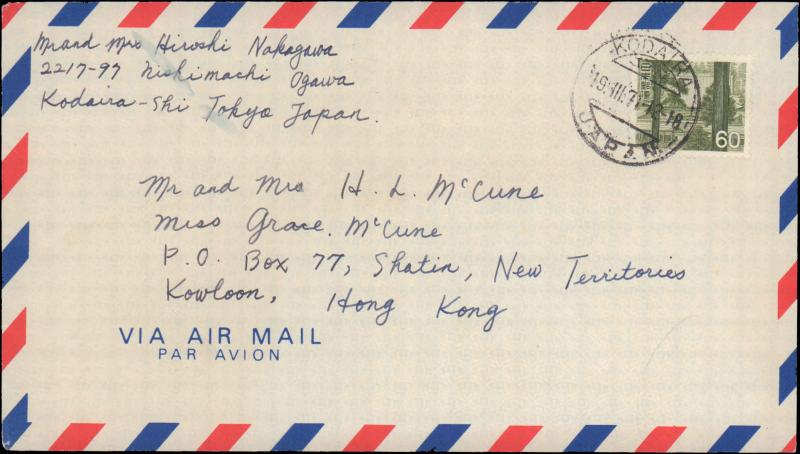 Mr and Mrs Hiroshi Nakagawa
2217-97 Nishimachi Ogawa
Kodaira-Shi Tokyo Japan.
KODAIRA
19.III.71 12-18
JAPAN
60
Mr and Mrs H. L. McCune
Miss Grace McCune
P.O. Box 77, Shatin, New Territories
Kowloon, Hong Kong
VIA AIR MAIL
PAR AVION